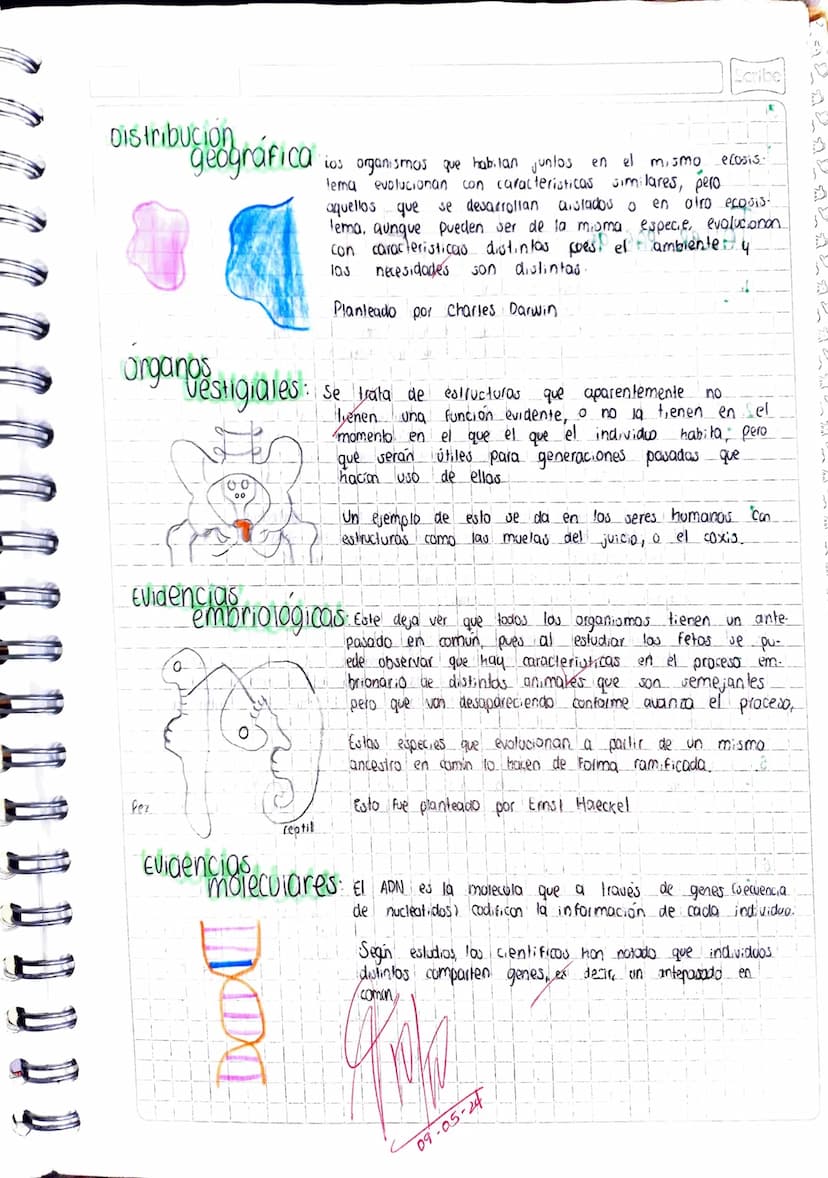 Scribe
Distribución
geográfica
los organismos que habitan juntos en el mismo ecosis-
tema evolucionan con características similares, pero
aquellos que se desarrollan aislados o en otro ecosis-
tema, aunque pueden ser de la misma especie, evolucionan
con características distintas pues el ambiente y
las necesidades son distintas.
Planteado por Charles Darwin
Órganos
vestigiales:
Se trata de estructuras que aparentemente no
tienen una función evidente, o no la tienen en el
momento en el que el que el individuo habita, pero
que serán útiles para generaciones pasadas que
hacían uso de ellas
Un ejemplo de esto se da en los seres humanos con
estructuras como las muelas del juicio, o el coxis.
Evidencias
embriológicas:
Este deja ver que todos los organismos tienen un ante-
pasado en común, pues al estudiar los fetos se pu-
ede observar que hay características en el proceso em-
brionario de distintos animales que son semejantes
pero que van desapareciendo conforme avanza el proceso,
Estas especies que evolucionan a partir de un mismo
ancestro en común lo hacen de forma ramificada.
Esto fue planteado por Ernst Haeckel
Pez
reptil
Evidencias
moleculares:
El ADN es la molécula que a través de genes (secuencia
de nucleotidos) codifican la información de cada individuo.
Según estudios, los científicos han notado que individuos
distintos comparten genes, es decir, un antepasado en
común,
09-05-24